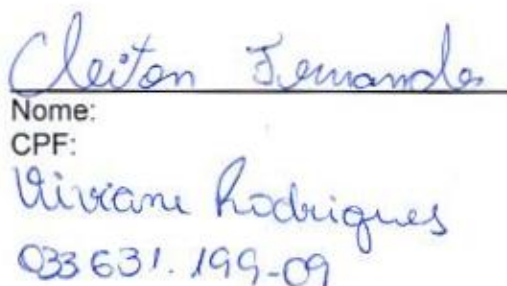 Cleiton Fernandes
Nome:
CPF:
Viviane Rodrigues
033631.199-09